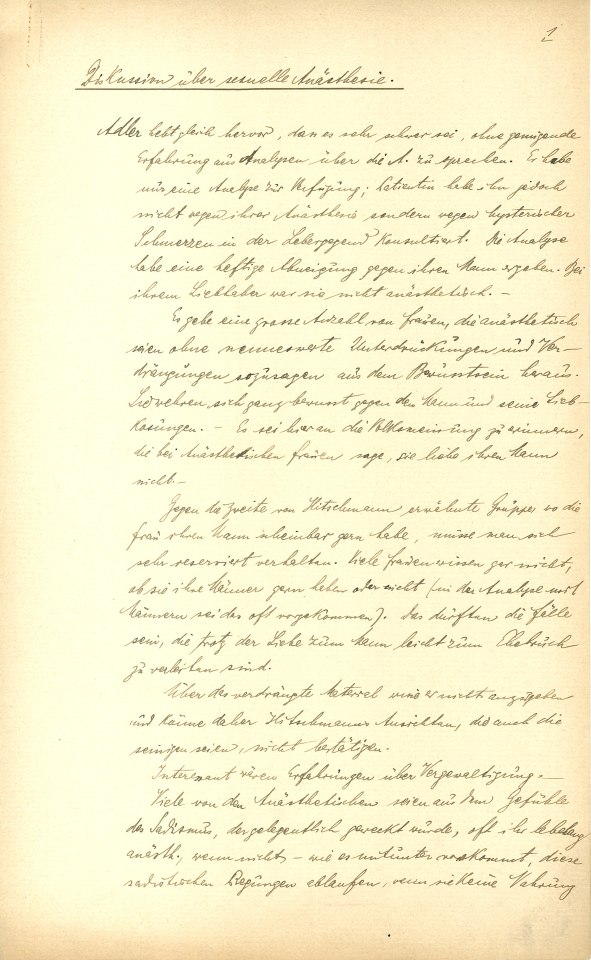 1
Diskussion über sexuelle Anästhesie.
Adler hebt gleich hervor, dass es sehr schwer sei, ohne genügende
Erfahrung aus Analysen über die A. zu sprechen. Er habe
nur eine Analyse zur Verfügung; Patientin habe ihn jedoch
nicht wegen ihrer Anästhesie sondern wegen hysterischer
Schmerzen in der Lebergegend konsultiert. Die Analyse
habe eine heftige Abneigung gegen ihren Mann ergeben. Bei
ihrem Liebhaber war sie nicht anästhetisch. –
Es gebe eine grosse Anzahl von Frauen, die anästhetisch
seien ohne nennenswerte Unterdrückungen und Ver-
drängungen sozusagen aus dem Bewusstsein heraus.
Sie wehren sich ganz bewusst gegen den Mann und seine Lieb-
kosungen. – Es sei hier an die Volksmeinung zu erinnern,
die bei anästhetischen Frauen sage, sie liebe ihren Mann
nicht. –
Gegen die zweite von Hitschmann erwähnte Gruppe wo die
Frau ihren Mann scheinbar gern habe, müsse man sich
sehr reserviert verhalten. Viele Frauen wissen gar nicht,
ob sie ihre Männer gern haben oder nicht (in den Analyse mit
Männern sei das oft vorgekommen). Das dürften die Fälle
sein, die trotz der Liebe zum Mann leicht zum Ehebruch
zu verleiten sind.
Über das verdrängte Material wisse er nichts anzugeben
und könne daher Hitschmanns Ansichten, die auch die
seinigen seien, nicht bestätigen.
Interessant wären Erfahrungen über Vergewaltigung. –
Viele von den Anästhetischen seien aus dem Gefühle
des Sadismus, der gelegentlich geweckt würde, oft ihr lebelang
anästh., wenn nicht – wie es mitunter vorkommt, diese
sadistischen Regungen ablaufen, wenn sie keine Nahrung